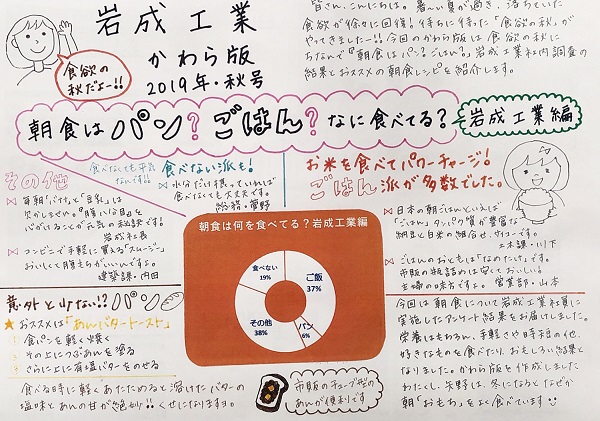 岩成工業
かわら版
2019年・秋号
食欲の
秋だよー!!
皆さん、こんにちは。暑い夏が過ぎ、落ちていた
食欲が徐々に回復！待ちに待った「食欲の秋」が
やってきましたー!! 今回のかわら版は 食欲の秋に
ちなんで『朝食はパン？ごはん？』岩成工業社内調査の
結果とおススメの朝食レシピを紹介します。
朝食は パン？ ごはん？ なに食べてる？
岩成工業編
その他
毎朝「バナナ」と「豆乳」は
欠かしません。『腹八分目』を
心がけることが元気の秘訣です！
岩成社長
コンビニで手軽に買える「スムージー」
おいしくて腹もちがいいんですよ。
建築課・内田
食べなくても平気
なんです
食べない派も！
水分だけ摂っていれば
食べなくても大丈夫です。
総務・菅野
お米を食べてパワーチャージ！
ごはん派が多数でした。
日本の朝ごはんといえば
「ごはん」タンパク質が豊富な
納豆と白米の組合せ、サイコーです。
土木課・川下
ごはんのおともは「なめたけ」です。
市販の瓶詰めは安くておいしい
主婦の味方ですよ。 営業部・山本
朝食は何を食べてる？岩成工業編
食べない
19%
ご飯
37%
その他
38%
パン
6%
意外と少ない!? パン
★おススメは「あんバタートースト」
① 食パンを軽く焼く
② その上につぶあんを塗る
③ さらに上に有塩バターをのせる
食べる時に軽くあたためると溶けたバターの
塩味とあんの甘が絶妙!! くせになりますヨ。
市販のチューブ式の
あんが便利です
今回は朝食について岩成工業社員に
実施したアンケート結果をお届けしました。
栄養はもちろん、手軽さや時短の他、
好きなものを食べたり、おもしろい結果と
なりました。かわら版を作成しました
わたくし、矢野は、冬になるとなぜか
朝「おもち」をよく食べています